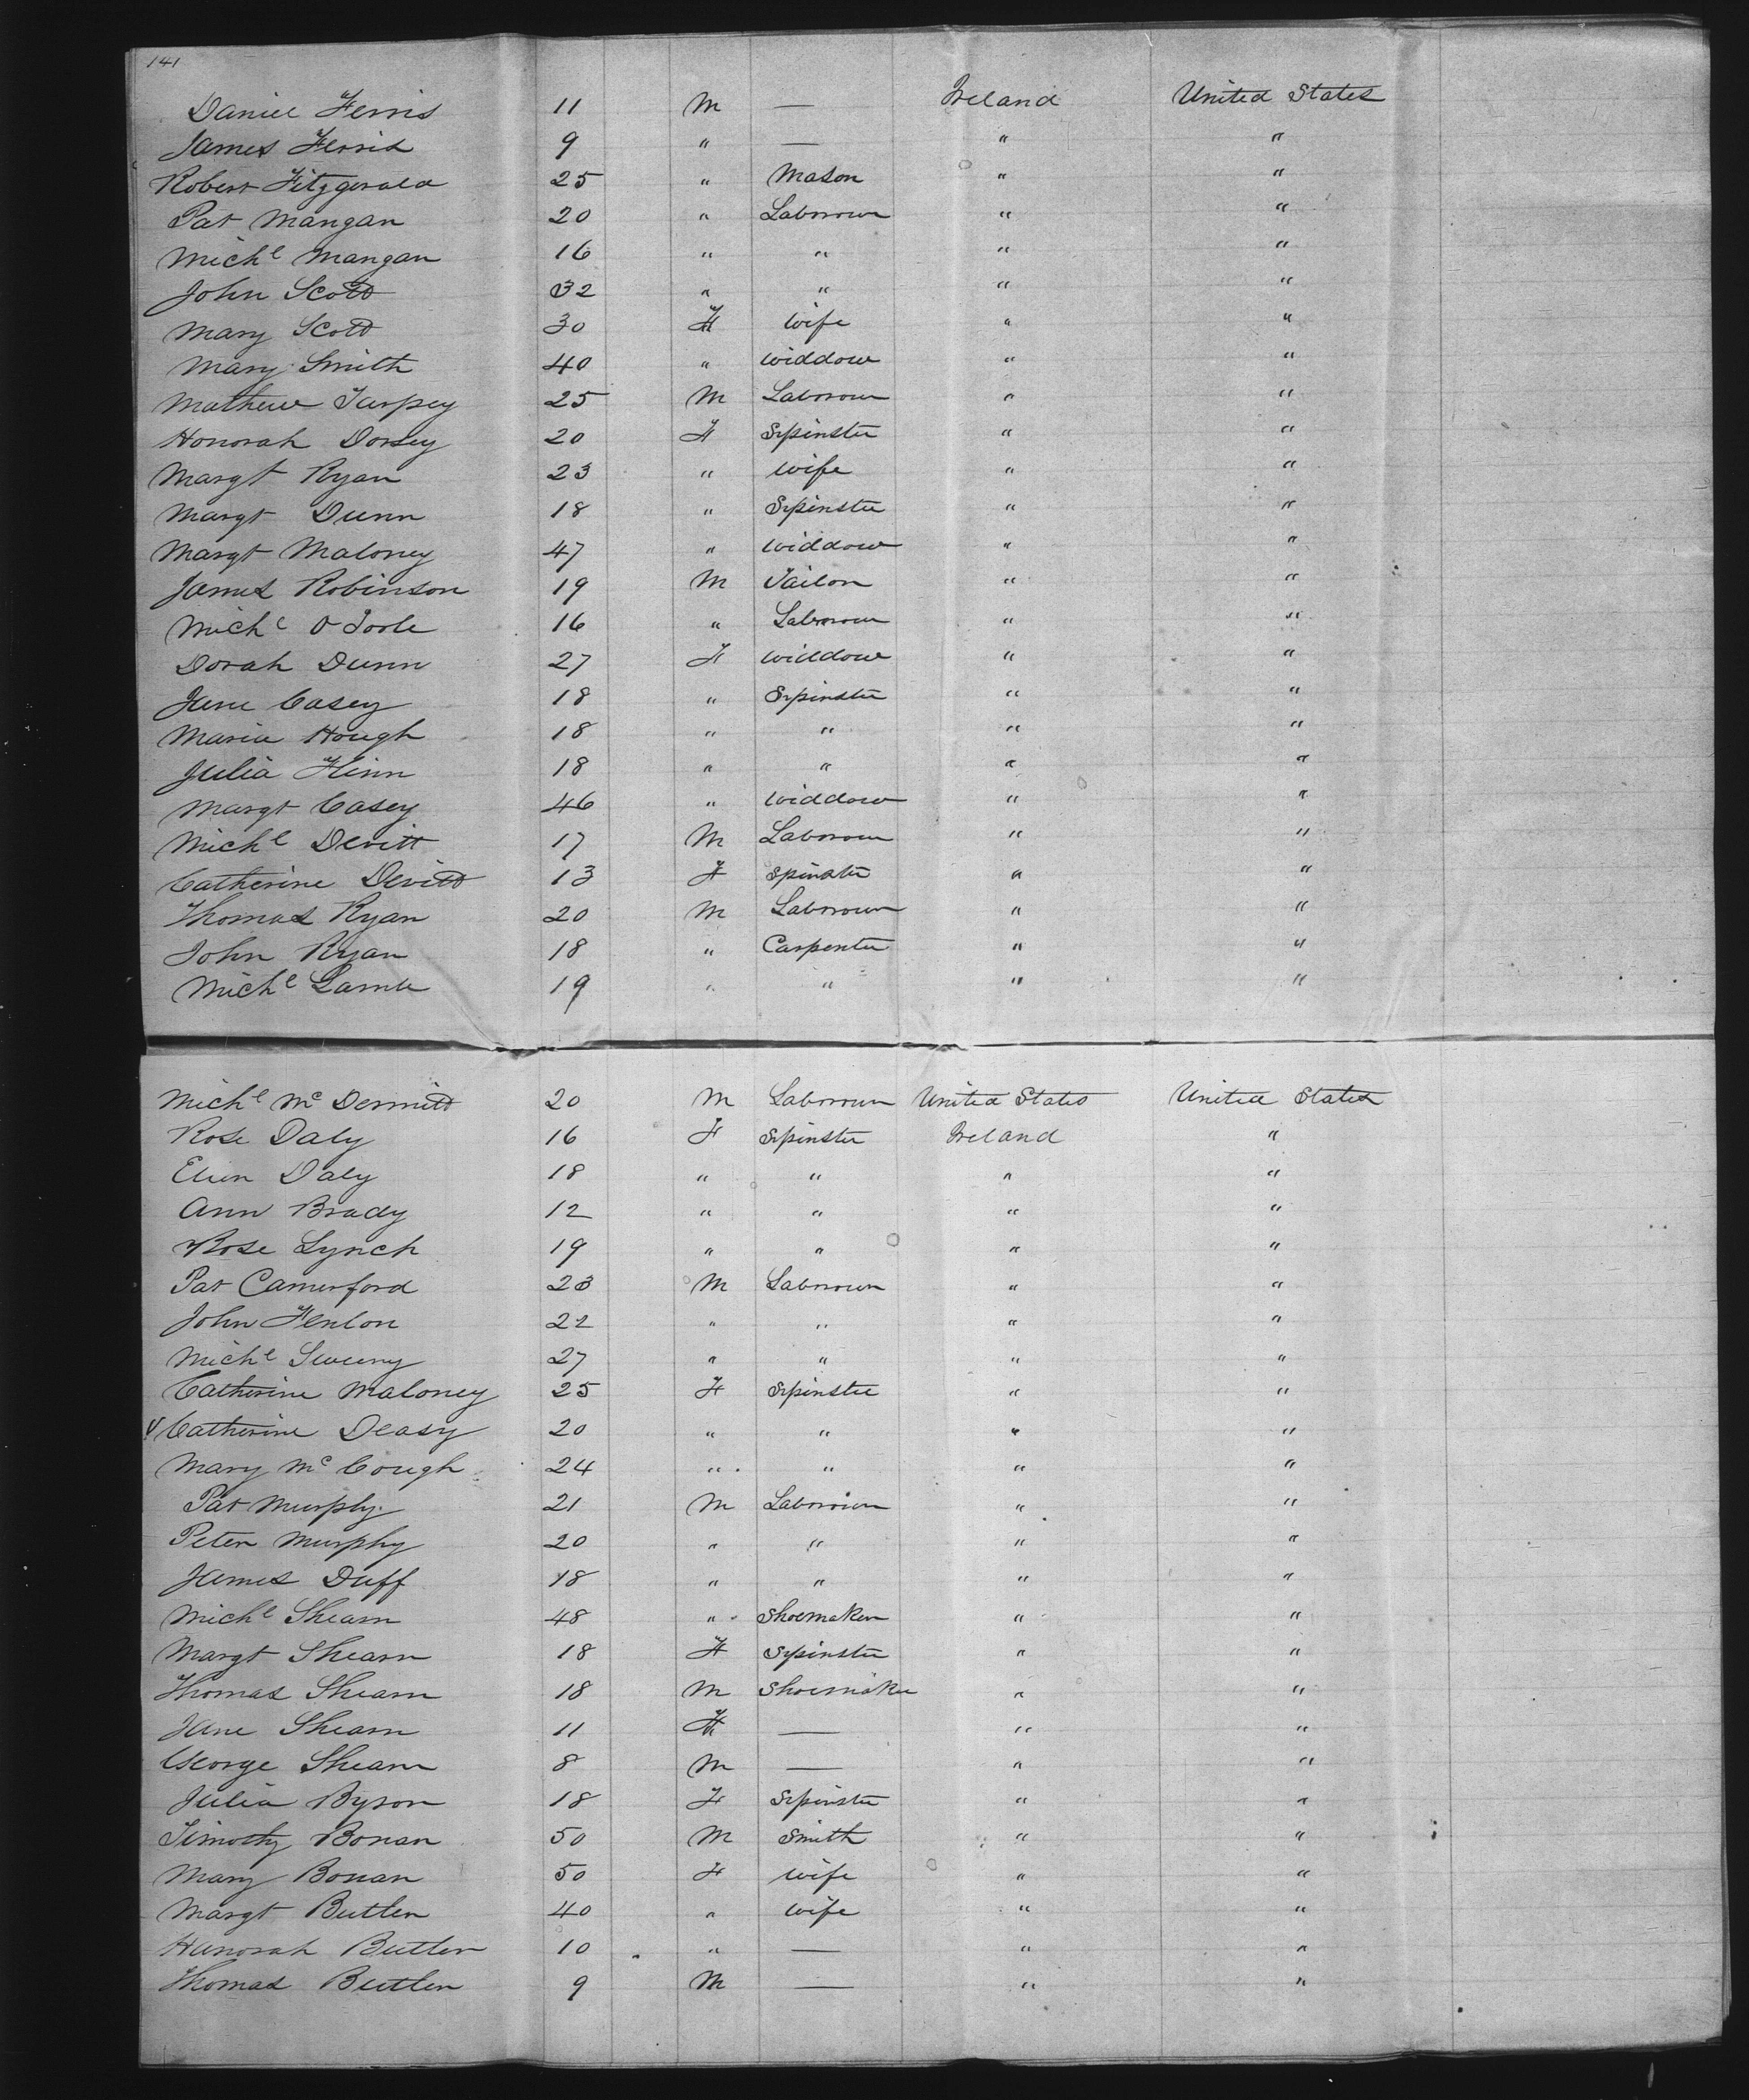 141
Daniel Ferris 11 M — Ireland United States
James Ferris 9 " — " "
Robert Fitzgerald 25 " Mason " "
Pat Mangan 20 " Labrourer " "
Michl Mangan 16 " " " "
John Scott 32 " " " "
Mary Scott 30 F wife " "
Mary Smith 40 " widdow " "
Mathew Tarpey 25 M Labrourer " "
Honorah Dorsey 20 F Spinster " "
Margt Ryan 23 " wife " "
Margt Dunn 18 " Spinster " "
Margt Maloney 47 " widdow " "
James Robinson 19 M Tailor " "
Michl O Toole 16 " Labrourer " "
Dorah Dunn 27 F widdow " "
Jane Casey 18 " Spinster " "
Maria Hough 18 " " " "
Julia Flinn 18 " " " "
Margt Casey 46 " widdow " "
Michl Devitt 17 M Labrourer " "
Catherine Devitt 13 F Spinster " "
Thomas Ryan 20 M Labrourer " "
John Ryan 18 " Carpenter " "
Michl Lamb 19 " " " "
Michl Mc Dermitt 20 M Labrourer United States United States
Rose Daly 16 F Spinster Ireland "
Ellen Daly 18 " " " "
Ann Brady 12 " " " "
Rose Lynch 19 " " " "
Pat Camerford 23 M Labrourer " "
John Fenlon 22 " " " "
Michl Sweeny 27 " " " "
Catherine Maloney 25 F Spinster " "
Catherine Deasy 20 " " " "
Mary Mc Cough 24 " " " "
Pat Murphy 21 M Labrourer " "
Peter Murphy 20 " " " "
James Duff 18 " " " "
Michl Shearn 48 " Shoemaker " "
Margt Shearn 18 F Spinster " "
Thomas Shearn 18 M Shoemaker " "
Jane Shearn 11 F — " "
George Shearn 8 M — " "
Julia Byron 18 F Spinster " "
Timothy Bonan 50 M Smith " "
Mary Bonan 50 F wife " "
Margt Butler 40 " wife " "
Hanorah Butler 10 " — " "
Thomas Butler 9 M — " "